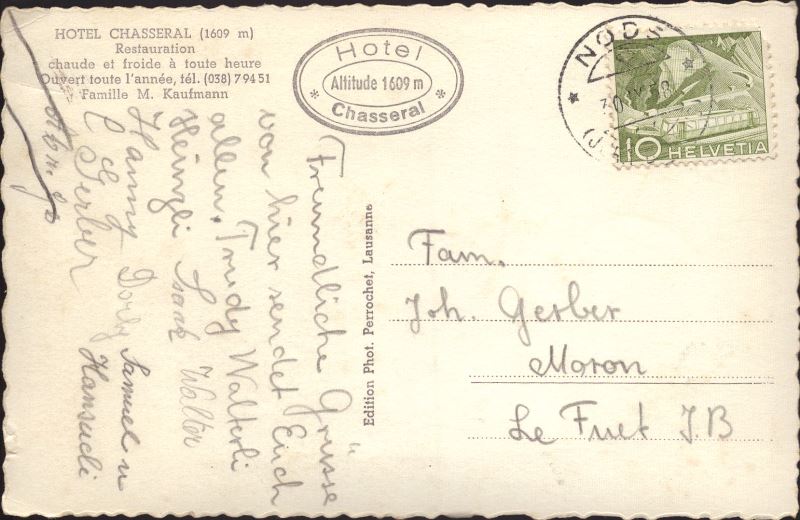 HOTEL CHASSERAL (1609 m)
Restauration
chaude et froide à toute heure
Ouvert toute l'année, tél. (038) 7 94 51
Famille M. Kaufmann
Hotel
Altitude 1609 m
* Chasseral *
NODS
10 HELVETIA
Freundliche Grüsse
von hier sendet Euch
allen, Trudy Walterli
Heinzli Isaak Walter
Hanny Dorly Samuel u
E Gerber Hansueli
Edition Phot. Perrochet, Lausanne
Fam.
Joh. Gerber
Moron
Le Fuet J B